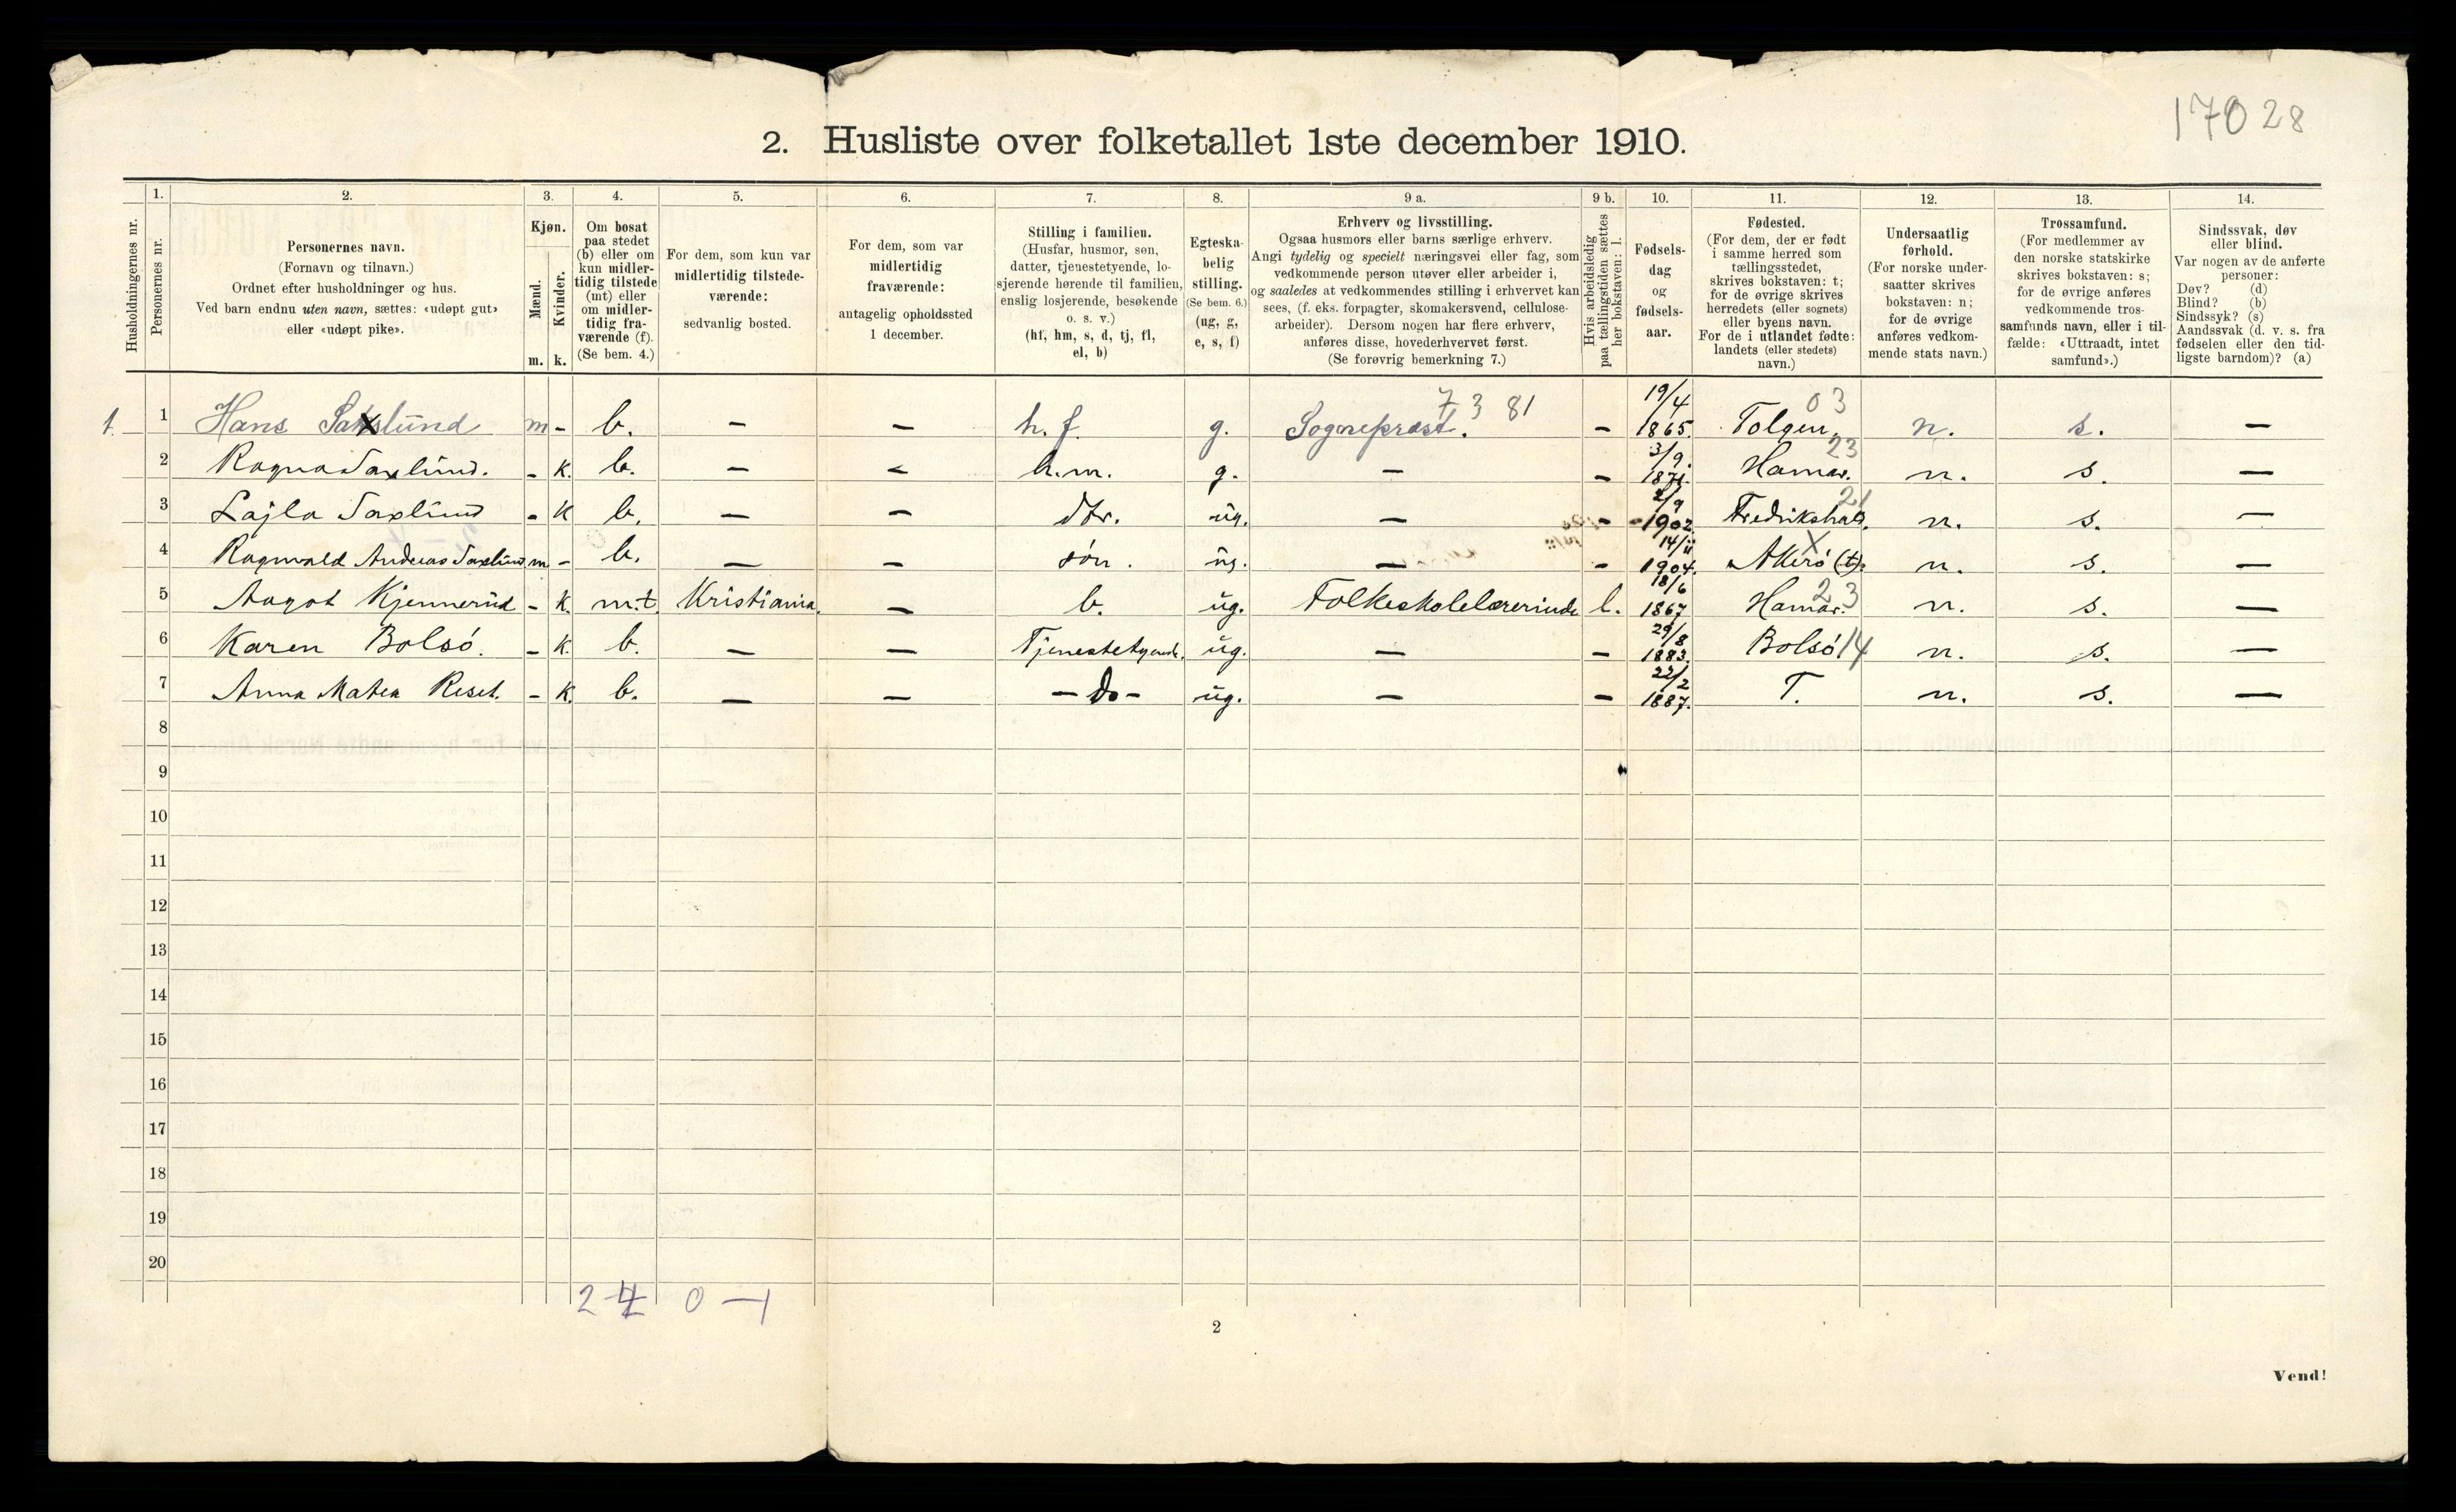 17028
2. Husliste over folketallet 1ste december 1910.
Husholdningernes nr.
1.
Personernes nr.
2.
Personernes navn.
(Fornavn og tilnavn.)
Ordnet efter husholdninger og hus.
Ved barn endnu uten navn, sættes: «udøpt gut»
eller «udøpt pike».
3.
Kjøn.
Mænd.
Kvinder.
m. k.
4.
Om bosat
paa stedet
(b) eller om
kun midler-
tidig tilstede
(mt) eller
om midler-
tidig fra-
værende (f).
(Se bem. 4.)
5.
For dem, som kun var
midlertidig tilstede-
værende:
sedvanlig bosted.
6.
For dem, som var
midlertidig
fraværende:
antagelig opholdssted
1 december.
7.
Stilling i familien.
(Husfar, husmor, søn,
datter, tjenestetyende, lo-
sjerende hørende til familien,
enslig losjerende, besøkende
o. s. v.)
(hf, hm, s, d, tj, fl,
el, b)
8.
Egteska-
belig
stilling.
(Se bem. 6.)
(ug, g,
e, s, f)
9 a.
Erhverv og livsstilling.
Ogsaa husmors eller barns særlige erhverv.
Angi tydelig og specielt næringsvei eller fag, som
vedkommende person utøver eller arbeider i,
og saaledes at vedkommendes stilling i erhvervet kan
sees, (f. eks. forpagter, skomakersvend, cellulose-
arbeider). Dersom nogen har flere erhverv,
anføres disse, hovederhvervet først.
(Se forøvrig bemerkning 7.)
9 b.
Hvis arbeidsledig
paa tællingstiden sættes
her bokstaven: l.
10.
Fødsels-
dag
og
fødsels-
aar.
11.
Fødested.
(For dem, der er født
i samme herred som
tællingsstedet,
skrives bokstaven: t;
for de øvrige skrives
herredets (eller sognets)
eller byens navn.
For de i utlandet fødte:
landets (eller stedets)
navn.)
12.
Undersaatlig
forhold.
(For norske under-
saatter skrives
bokstaven: n;
for de øvrige
anføres vedkom-
mende stats navn.)
13.
Trossamfund.
(For medlemmer av
den norske statskirke
skrives bokstaven: s;
for de øvrige anføres
vedkommende tros-
samfunds navn, eller i til-
fælde: «Uttraadt, intet
samfund».)
14.
Sindssvak, døv
eller blind.
Var nogen av de anførte
personer:
Døv? (d)
Blind? (b)
Sindssyk? (s)
Aandssvak (d. v. s. fra
fødselen eller den tid-
ligste barndom)? (a)
1. 1 Hans Saxlund m - b. — — h.f. g. Sogneprest. 7 3 81 - 19/4 1865. Tolgen. 03 n. s. —
2 Ragna Saxlund. - k. b. — — h.m. g. — - 3/9. 1871. Hamar. 23 n. s. —
3 Lajla Saxlund - k b. — — dtr. ug. — - 2/9 1902 Fredrikshald. 21 n. s. —
4 Ragnvald Andreas Saxlund m - b. — — søn. ug. — - 14/11 1904. Akerø (t). X n. s. —
5 Aagot Kjennerud - k. m.t. Kristiania. — b. ug. Folkeskolelærerinde l. 18/6 1867 Hamar. 23 n. s. —
6 Karen Bolsø. - k. b. — — Tjenestetyende. ug. — - 29/8 1883. Bolsø 14 n. s. —
7 Anna Matea Reset. - k. b. — — - do - ug. — - 22/2 1887. T. n. s. —
8
9
10
11
12
13
14
15
16
17
18
19
20
2-4 0-1
2
Vend!